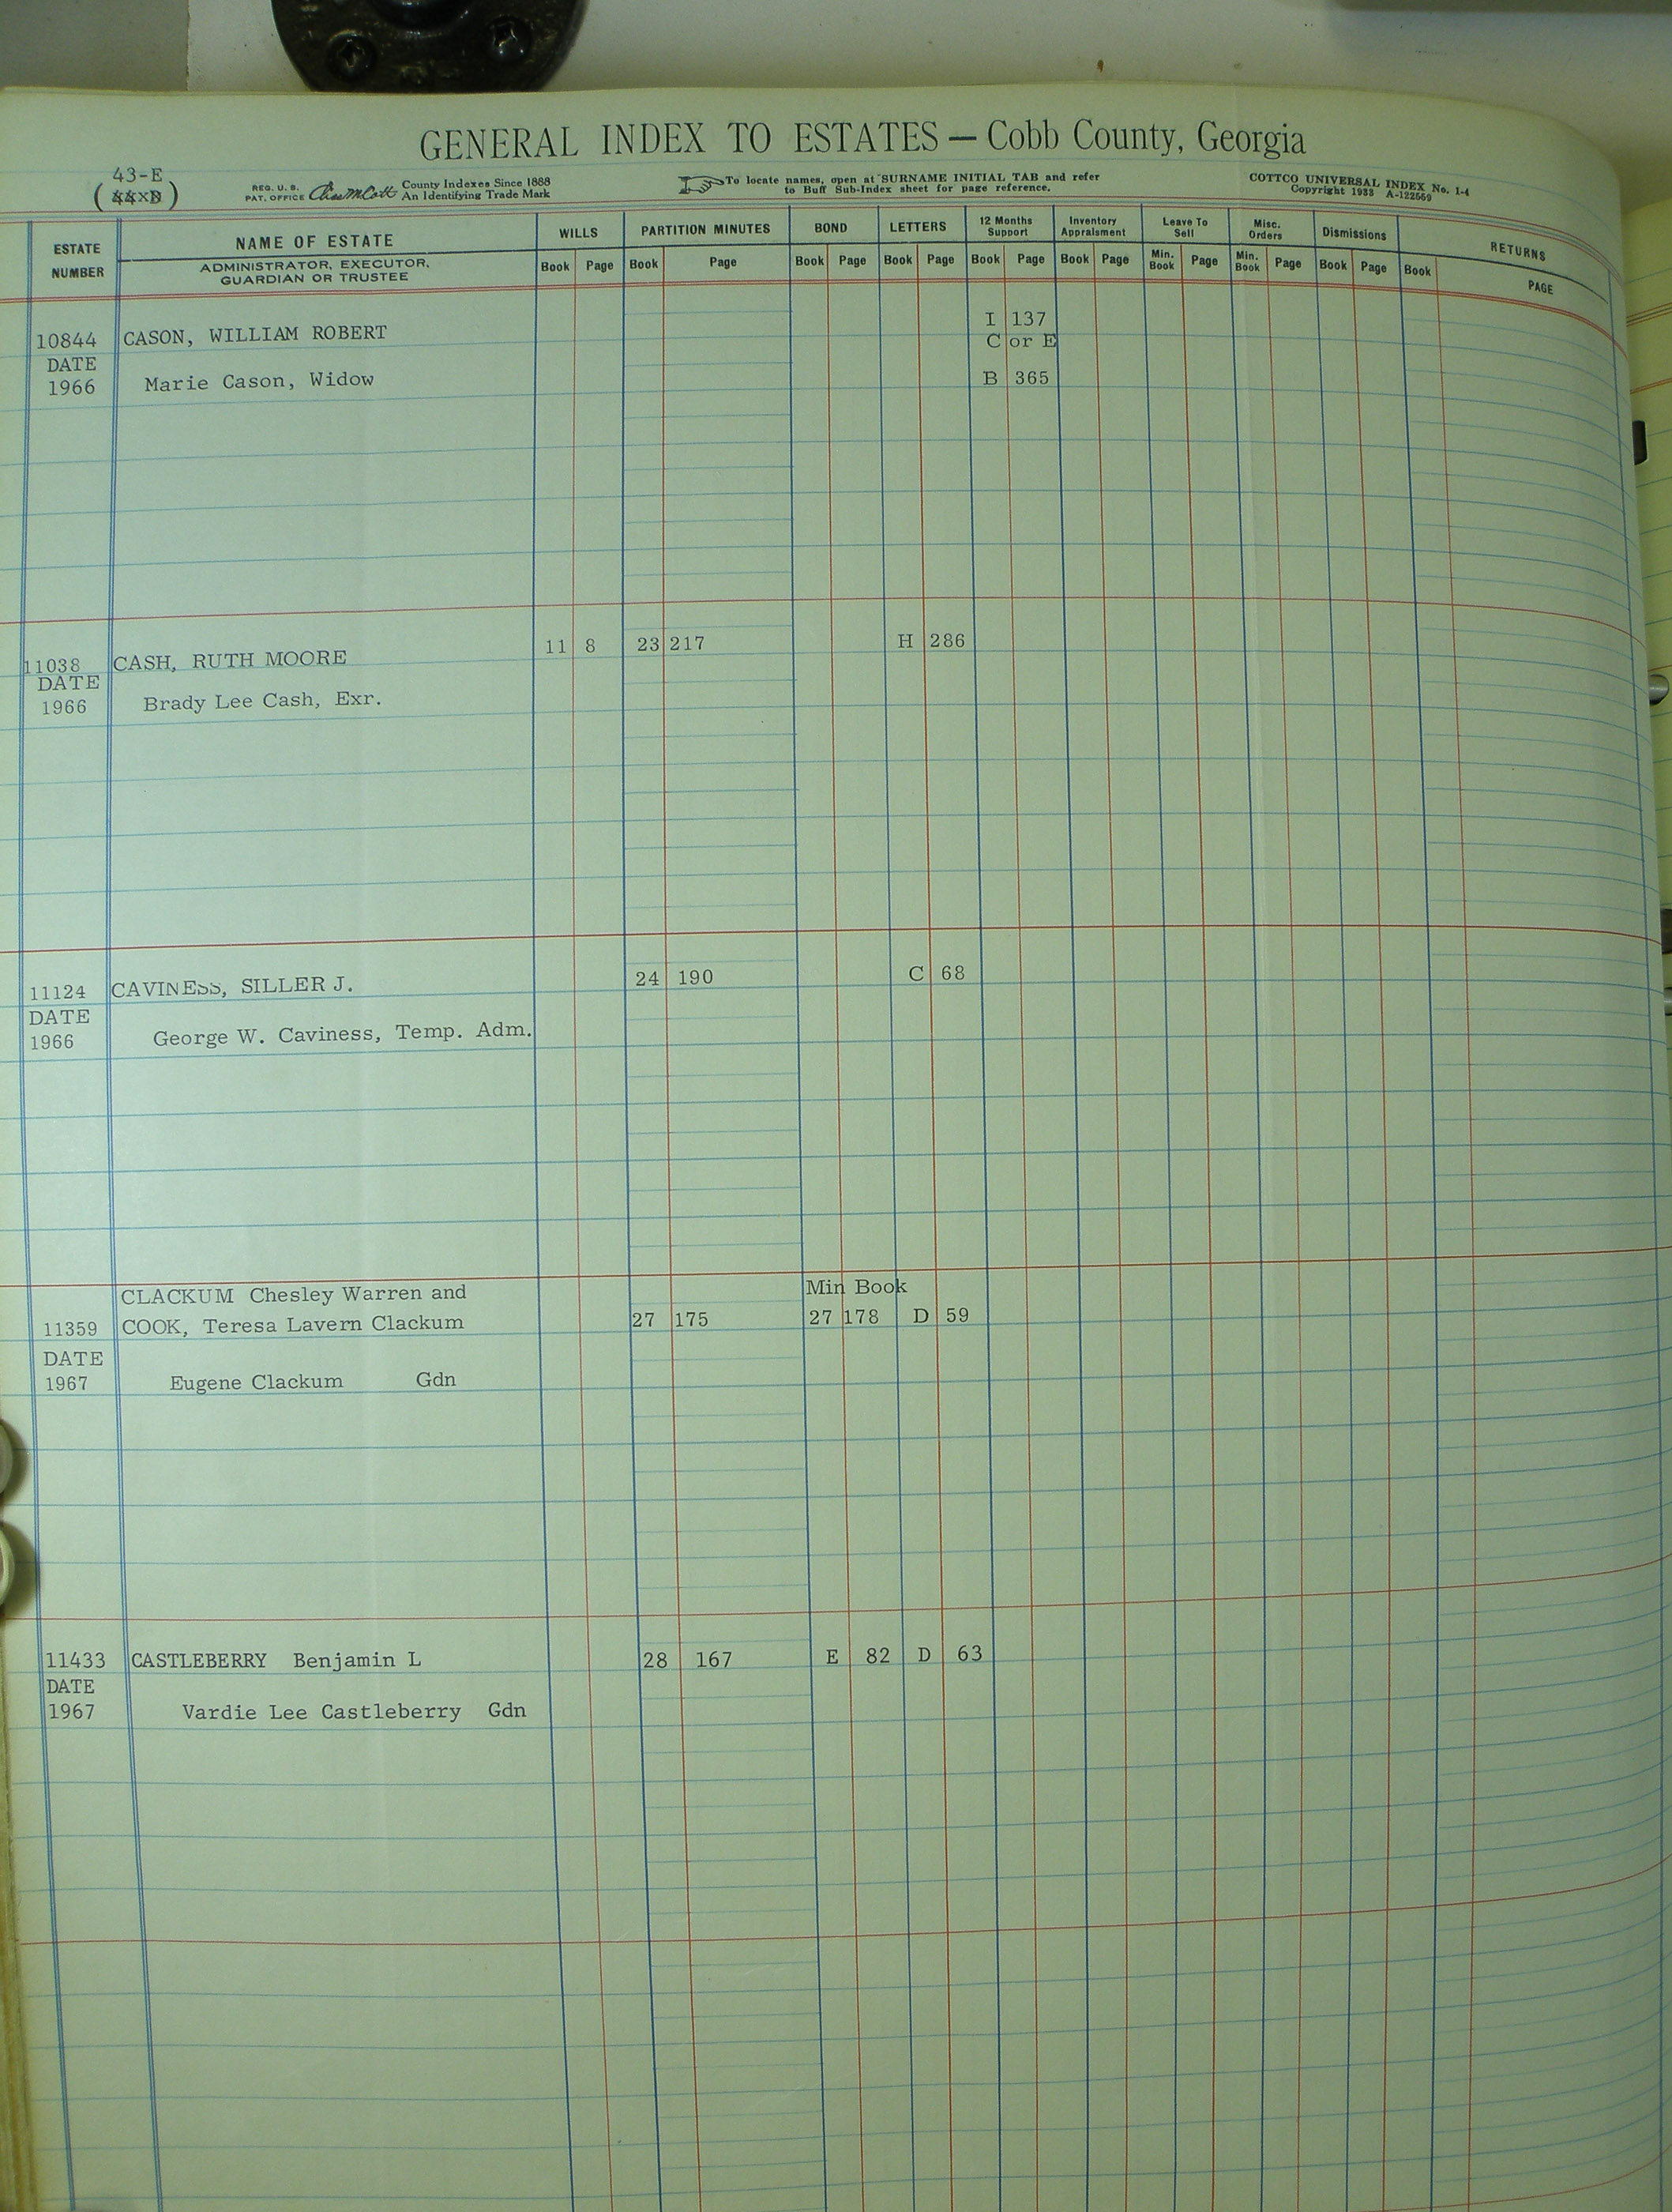 GENERAL INDEX TO ESTATES — Cobb County, Georgia
43-E
( )
REG. U. S. PAT. OFFICE County Indexes Since 1888 An Identifying Trade Mark
To locate names, open at SURNAME INITIAL TAB and refer to Buff Sub-Index sheet for page reference.
COTTCO UNIVERSAL INDEX No. 1-4
Copyright 1938 A-122559
ESTATE NUMBER
NAME OF ESTATE
ADMINISTRATOR, EXECUTOR, GUARDIAN OR TRUSTEE
WILLS PARTITION MINUTES BOND LETTERS 12 Months Support Inventory Appraisment Leave To Sell Misc. Orders Dismissions RETURNS
Book Page Book Page Book Page Book Page Book Page Book Page Min. Book Page Min. Book Page Book Page Book PAGE
I 137
10844 CASON, WILLIAM ROBERT C or E
DATE
1966 Marie Cason, Widow B 365
11 8 23 217 H 286
11038 CASH, RUTH MOORE
DATE
1966 Brady Lee Cash, Exr.
24 190 C 68
11124 CAVINESS, SILLER J.
DATE
1966 George W. Caviness, Temp. Adm.
CLACKUM Chesley Warren and Min Book
11359 COOK, Teresa Lavern Clackum 27 175 27 178 D 59
DATE
1967 Eugene Clackum Gdn
11433 CASTLEBERRY Benjamin L 28 167 E 82 D 63
DATE
1967 Vardie Lee Castleberry Gdn